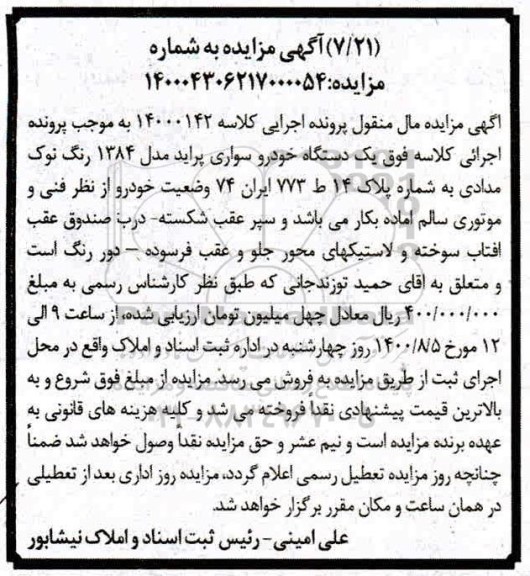 (۷/۲۱) آگهی مزایده به شماره
مزایده:۱۴۰۰۰۴۳۰۶۲۱۷۰۰۰۰۵۴
اگهی مزایده مال منقول پرونده اجرایی کلاسه ۱۴۰۰۰۱۴۲ به موجب پرونده
اجرائی کلاسه فوق یک دستگاه خودرو سواری پراید مدل ۱۳۸۴ رنگ نوک
مدادی به شماره پلاک ۱۴ ط ۷۷۳ ایران ۷۴ وضعیت خودرو از نظر فنی و
موتوری سالم اماده بکار می باشد و سپر عقب شکسته- درب صندوق عقب
افتاب سوخته و لاستیکهای محور جلو و عقب فرسوده – دور رنگ است
و متعلق به اقای حمید توزندجانی که طبق نظر کارشناس رسمی به مبلغ
۴۰۰/۰۰۰/۰۰۰ ریال معادل چهل میلیون تومان ارزیابی شده، از ساعت ۹ الی
۱۲ مورخ ۱۴۰۰/۸/۵ روز چهارشنبه در اداره ثبت اسناد و املاک واقع در محل
اجرای ثبت از طریق مزایده به فروش می رسد. مزایده از مبلغ فوق شروع و به
بالاترین قیمت پیشنهادی نقدا فروخته می شد و کلیه هزینه های قانونی به
عهده برنده مزایده است و نیم عشر و حق مزایده نقدا وصول خواهد شد ضمناً
چنانچه روز مزایده تعطیل رسمی اعلام گردد، مزایده روز اداری بعد از تعطیلی
در همان ساعت و مکان مقرر برگزار خواهد شد.
علی امینی- رئیس ثبت اسناد و املاک نیشابور